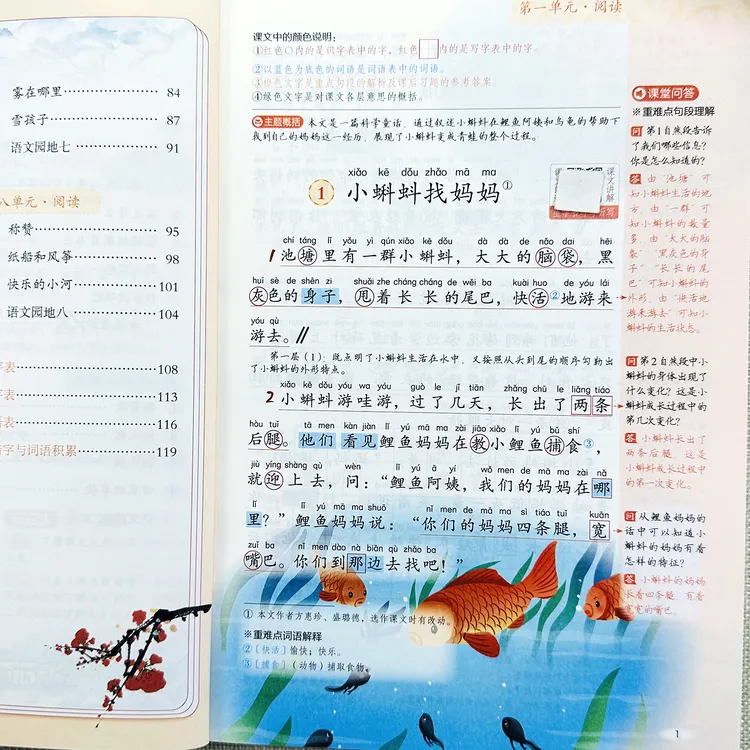 雾在哪里 84
雪孩子 87
语文园地七 91
八单元·阅读
称赞 95
纸船和风筝 98
快乐的小河 101
语文园地八 104
字表 108
表 113
语表 116
语句与词语积累 119
第一单元·阅读
课文中的颜色说明：
①红色○内的是识字表中的字，红色□内的是写字表中的字。
②以蓝色为底色的词语是词语表中的词语。
③橙色文字是重点句段的解析及课后习题的参考答案。
④绿色文字是对课文各层意思的概括。
主题概括 本文是一篇科学童话，通过叙述小蝌蚪在鲤鱼阿姨和乌龟的帮助下
找到自己的妈妈这一经历，展现了小蝌蚪变成青蛙的整个过程。
xiǎo kē dǒu zhǎo mā ma
1 小蝌蚪找妈妈①
课文讲解
chí táng lǐ yǒu yì qún xiǎo kē dǒu dà dà de nǎo dai hēi
1 池塘里有一群小蝌蚪，大大的脑袋，黑
huī sè de shēn zi shuǎi zhe cháng cháng de wěi ba kuài huo de yóu lái
灰色的身子，甩着长长的尾巴，快活②地游来
yóu qù
游去。//
第一层（1）：既点明了小蝌蚪生活在水中，又按照从头到尾的顺序勾勒出
了小蝌蚪的外形特点。
xiǎo kē dǒu yóu wa yóu guò le jǐ tiān zhǎng chū le liǎng tiáo
2 小蝌蚪游哇游，过了几天，长出了两条
hòu tuǐ tā men kàn jiàn lǐ yú mā ma zài jiāo xiǎo lǐ yú bǔ shí
后腿。他们看见鲤鱼妈妈在教小鲤鱼捕食③，
jiù yíng shàng qù wèn lǐ yú ā yí wǒ men de mā ma zài nǎ
就迎上去，问：“鲤鱼阿姨，我们的妈妈在哪
lǐ lǐ yú mā ma shuō nǐ men de mā ma sì tiáo tuǐ kuān
里？”鲤鱼妈妈说：“你们的妈妈四条腿，宽
zuǐ ba nǐ men dào nà biān qù zhǎo ba
嘴巴。你们到那边去找吧！”
① 本文作者方惠珍、盛璐德，选作课文时有改动。
※重难点词语解释
②〔快活〕愉快；快乐。
③〔捕食〕（动物）捕取食物。
课堂问答
※重难点句段理解
问 第1自然段告诉
了我们哪些信息？
你是怎么知道的？
答 由“池塘”可
知小蝌蚪生活的地
方，由“一群”可
知小蝌蚪的数量
多，由“大大的脑
袋”“黑灰色的身
子”“长长的尾
巴”可知小蝌蚪的
外形，由“快活地
游来游去”可知小
蝌蚪的生活状态。
问 第2自然段中小
蝌蚪的身体出现了
什么变化？这是小
蝌蚪成长过程中的
第几次变化？
答 小蝌蚪长出了
两条后腿。这是
小蝌蚪成长过程中
的第一次变化。
问 从鲤鱼妈妈的
话中可以知道小
蝌蚪的妈妈有着
怎样的特征？
答 小蝌蚪的妈妈
长着四条腿，有着
宽宽的嘴巴。
1